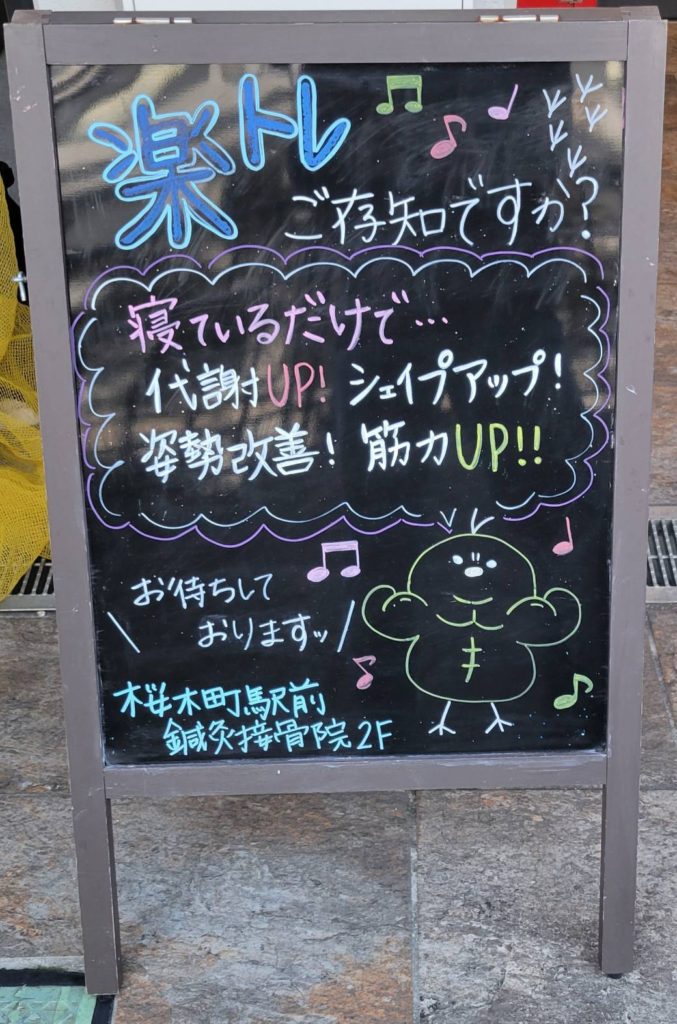 楽トレ
ご存知ですか?
寝ているだけで…
代謝UP! シェイプアップ!
姿勢改善! 筋力UP!!
お待ちして
おりますッ
桜木町駅前
鍼灸接骨院2F